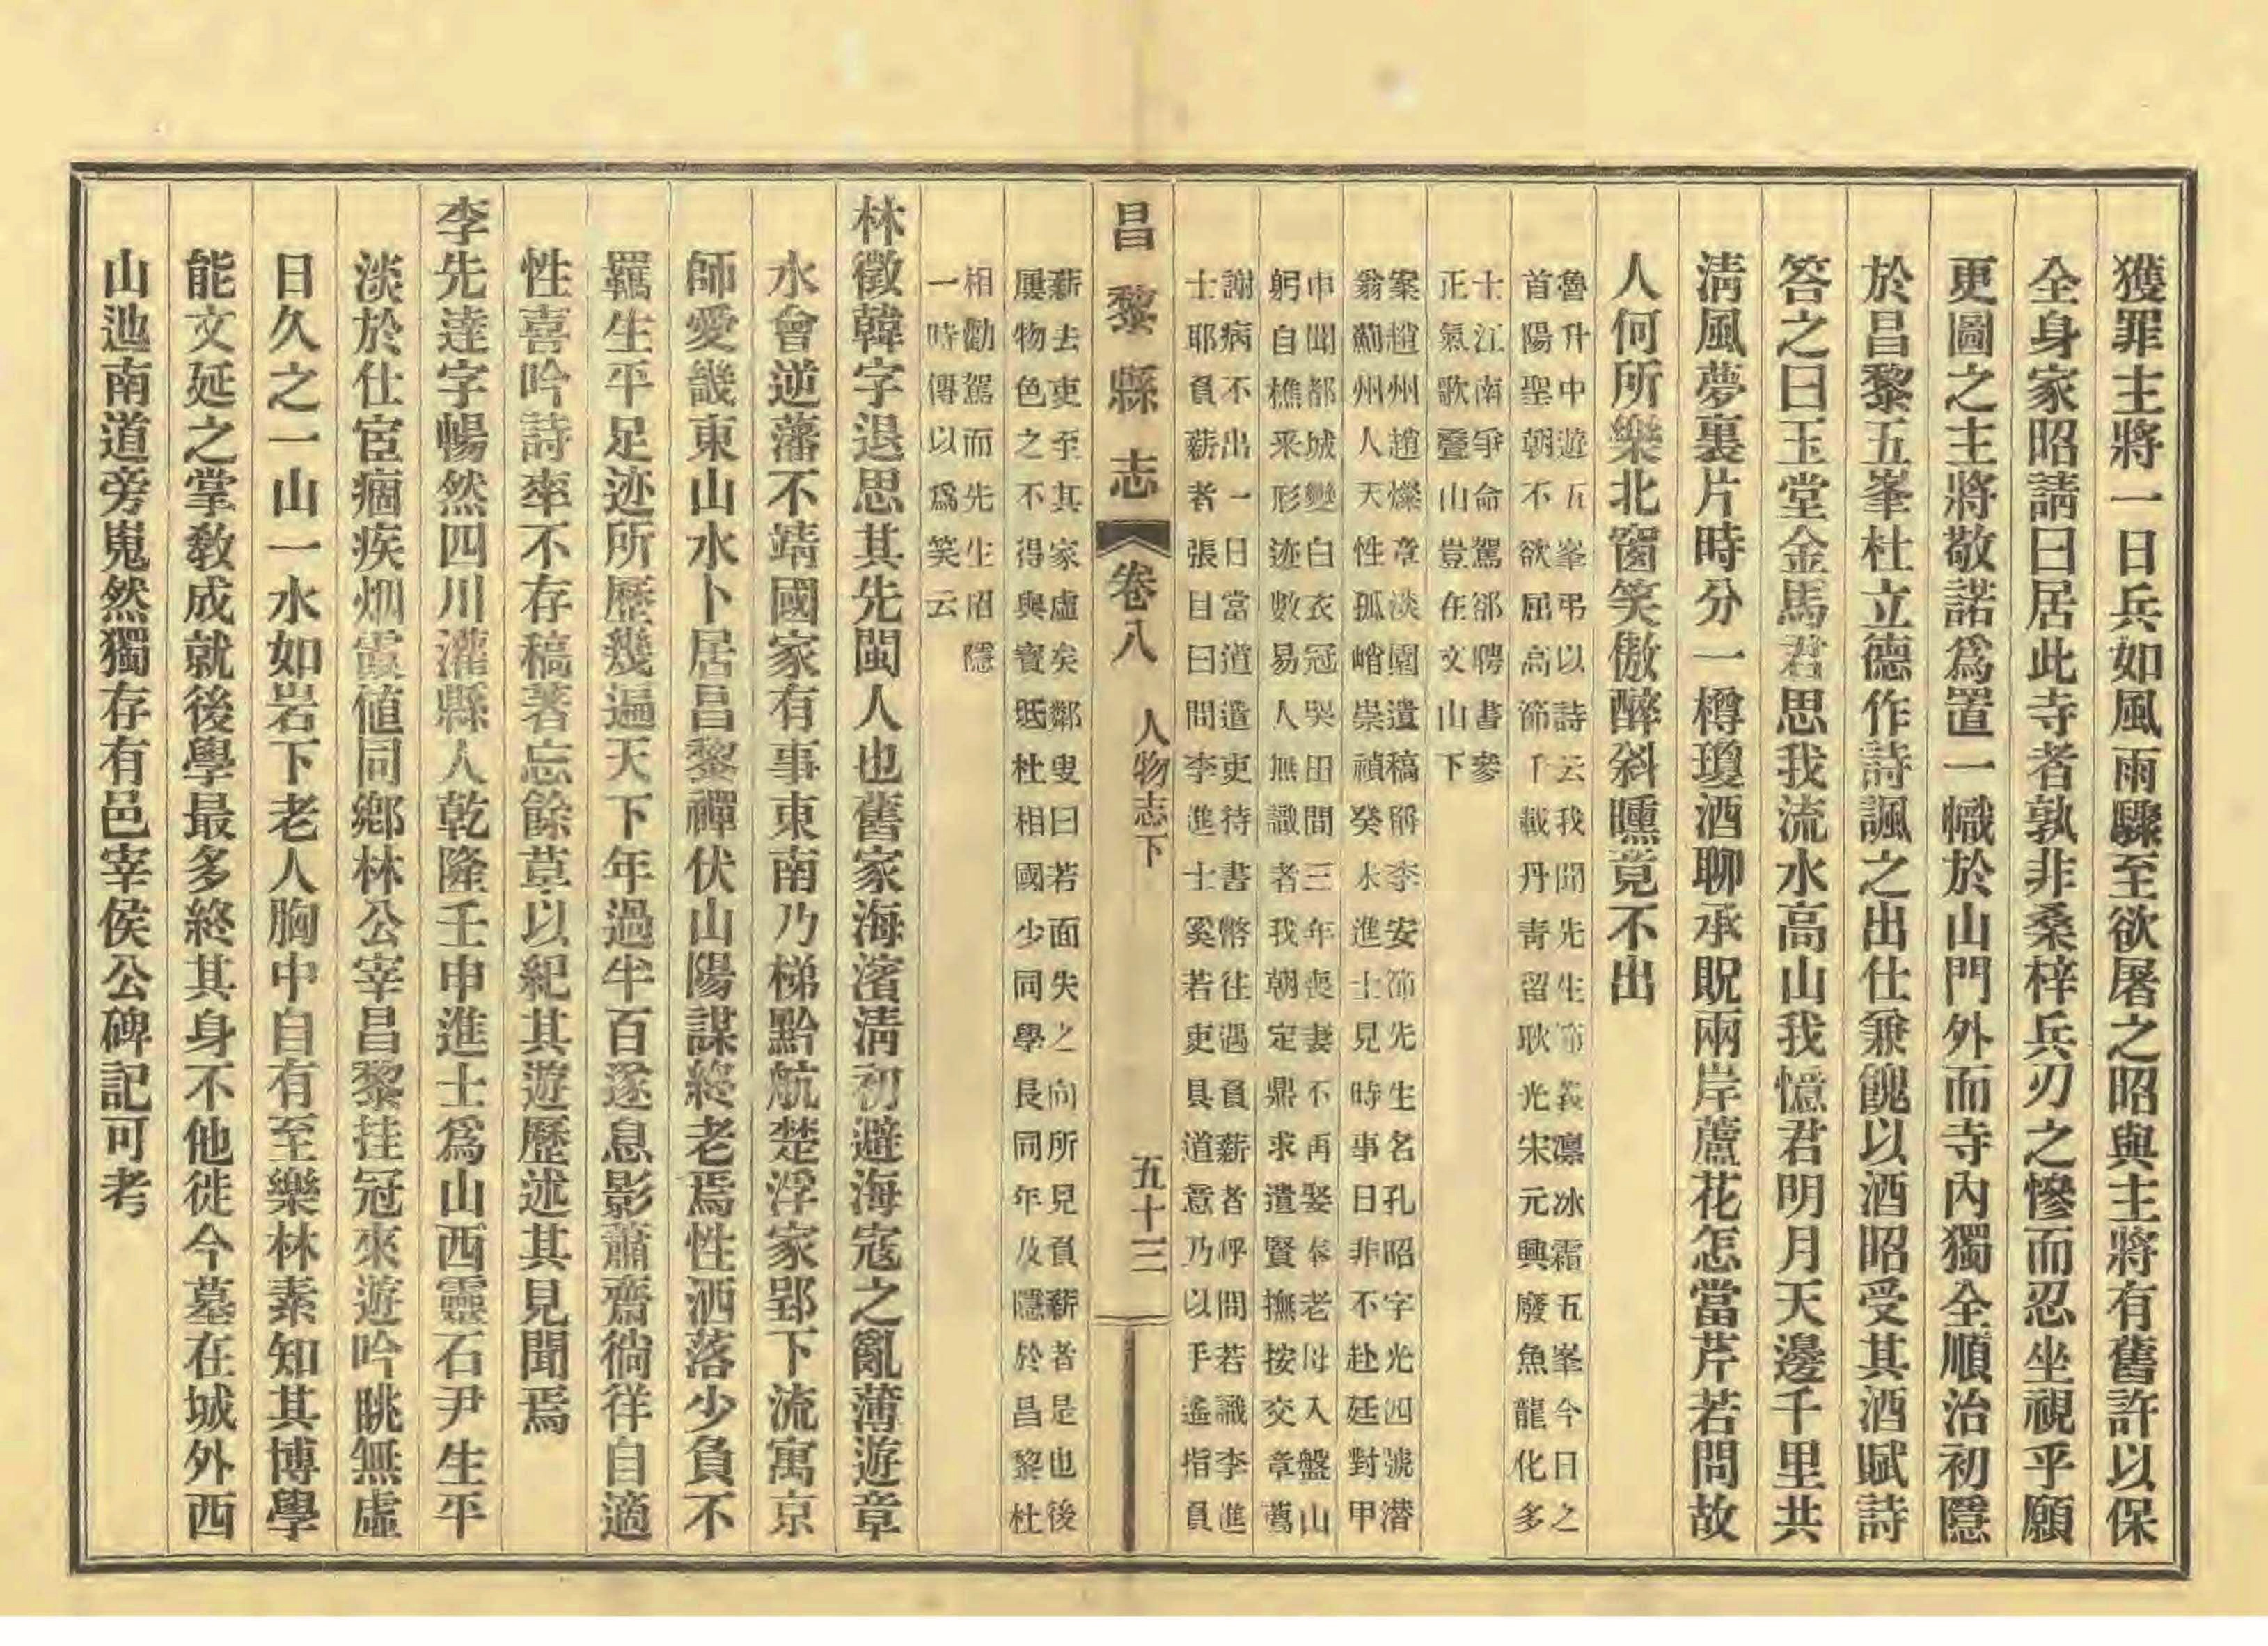 獲罪主將一日兵如風雨驟至欲屠之昭與主將有舊許以保
全身家昭請曰居此寺者孰非桑梓兵刃之慘而忍坐視乎願
更圖之主將敬諾爲置一幟於山門外而寺內獨全順治初隱
於昌黎五峯杜立德作詩諷之出仕兼餽以酒昭受其酒賦詩
答之曰玉堂金馬君思我流水高山我憶君明月天邊千里共
淸風夢裏片時分一樽瓊酒聊承貺兩岸蘆花怎當芹若問故
人何所樂北窗笑傲醉斜曛竟不出
魯升中遊五峯弔以詩云我聞先生節義凛冰霜五峯今日之
首陽聖朝不欲屈高節千載丹靑留耿光宋元興廢魚龍化多
士江南爭命駕郤聘書參
正氣歌疊山豈在文山下
案趙州趙燦章淡園遺稿解李安節先生名孔昭字光四號潜
翁薊州人天性孤峭崇禎癸未進士見時事日非不赴廷對甲
申聞都城變白衣冠哭田間三年喪妻不再娶奉老母入盤山
躬自樵采形迹數易人無識者我朝定鼎求遺賢撫按交章薦
謝病不出一日當道遣吏待書幣往遇負薪者呼問若識李進
士耶負薪者張目曰問李進士奚若吏具道意乃以手遙指負
薪去吏至其家虛矣鄰叟曰若面失之向所見負薪者是也後
屢物色之不得與寶坻杜相國少同學長同年及隱於昌黎杜
相勸駕而先生沼隱
一時傳以爲笑云
昌黎縣志 卷八 人物志下 五十三
林徵韓字退思其先閩人也舊家海濱淸初避海寇之亂薄遊章
水會逆藩不靖國家有事東南乃梯黔航楚浮家郢下流寓京
師愛畿東山水卜居昌黎禪伏山陽謀終老焉性洒落少負不
羈生平足迹所歷幾遍天下年過半百遂息影蕭齋徜徉自適
性喜吟詩率不存稿著忘餘草以紀其遊歷述其見聞焉
李先達字暢然四川灌縣人乾隆壬申進士爲山西靈石尹生平
淡於仕宦痼疾烟霞値同鄕林公宰昌黎挂冠來遊吟眺無虛
日久之一山一水如岩下老人胸中自有至樂林素知其博學
能文延之掌敎成就後學最多終其身不他徙今墓在城外西
山迆南道旁嵬然獨存有邑宰侯公碑記可考